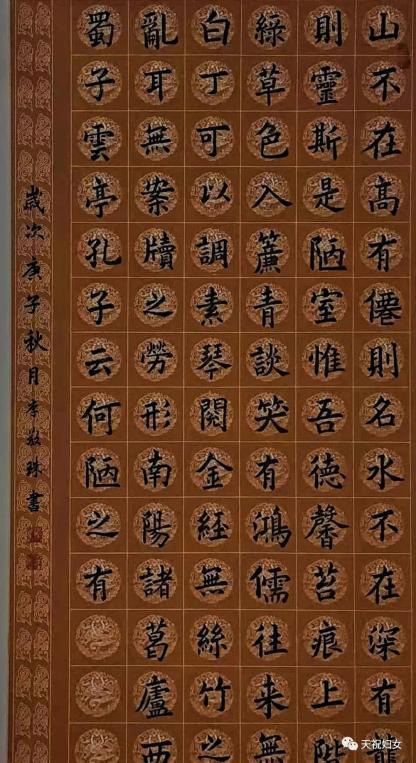 山不在高有僊則名水不在深有龍
則靈斯是陋室惟吾德馨苔痕上階
綠草色入簾青談笑有鴻儒往来無
白丁可以調素琴閱金經無絲竹之
亂耳無案牘之勞形南陽諸葛廬西
蜀子雲亭孔子云何陋之有
歲次庚子秋月李珠書
天祝妇女